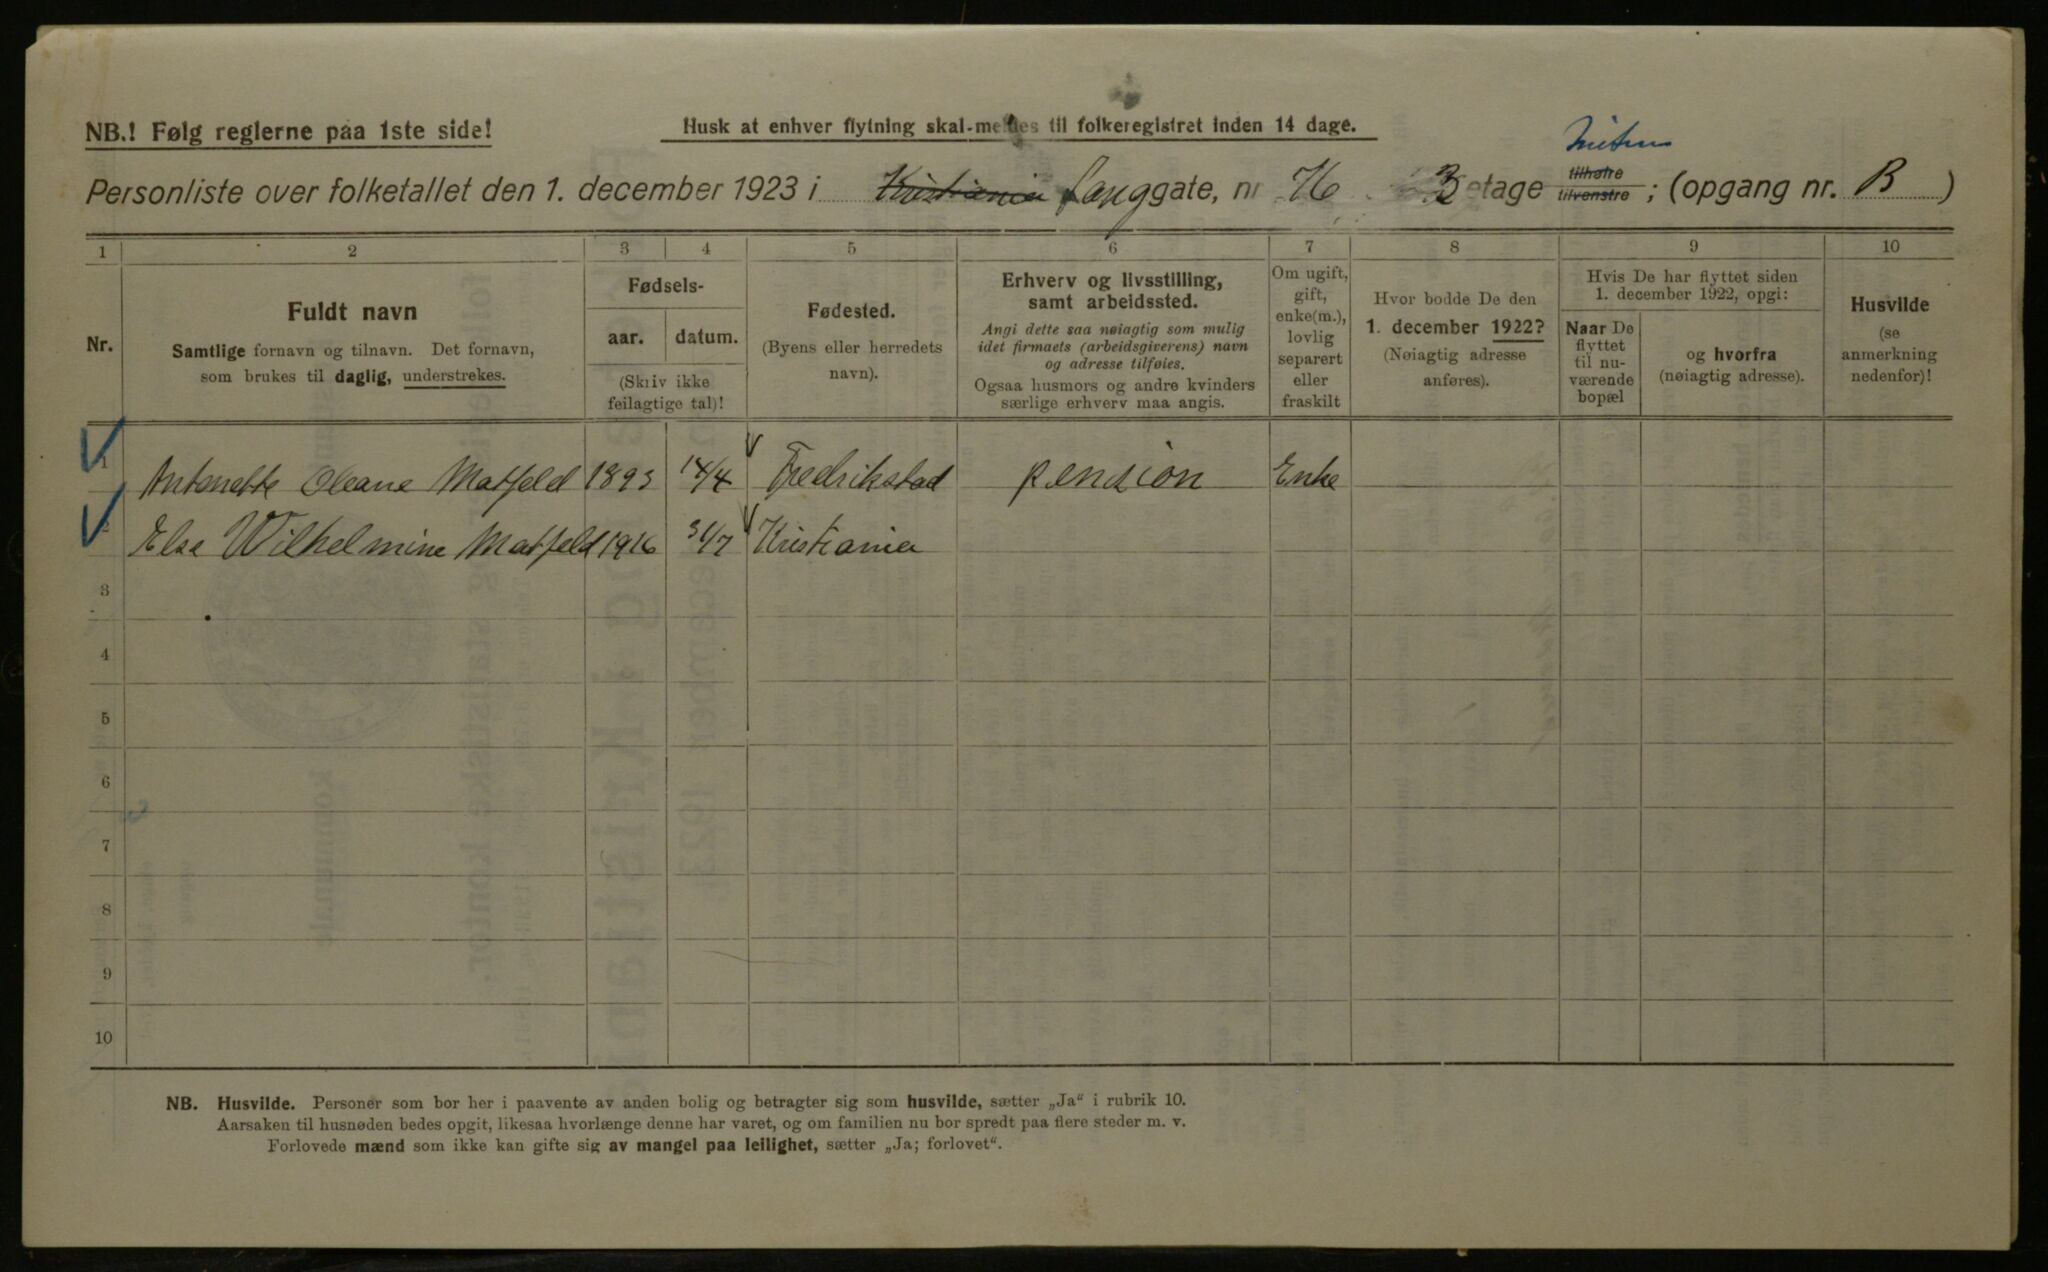 NB.! Følg reglerne paa 1ste side!
Husk at enhver flytning skal meldes til folkeregistret inden 14 dage.
Personliste over folketallet den 1. december 1923 i Kristiania Langgate, nr 3 etage tilhøire tilvenstre ; (opgang nr. B )
1 2 3 4 5 6 7 8 9 10
Nr.
Fuldt navn
Samtlige fornavn og tilnavn. Det fornavn,
som brukes til daglig, understrekes.
Fødsels-
aar. datum.
(Skriv ikke
feilagtige tal)!
Fødested.
(Byens eller herredets
navn).
Erhverv og livsstilling,
samt arbeidssted.
Angi dette saa nøiagtig som mulig
idet firmaets (arbeidsgiverens) navn
og adresse tilføies.
Ogsaa husmors og andre kvinders
særlige erhverv maa angis.
Om ugift,
gift,
enke(m.),
lovlig
separert
eller
fraskilt
Hvor bodde De den
1. december 1922?
(Nøiagtig adresse
anføres).
Hvis De har flyttet siden
1. december 1922, opgi:
Naar De
flyttet
til nu-
værende
bopæl
og hvorfra
(nøiagtig adresse).
Husvilde
(se
anmerkning
nedenfor)!
1 Antonette Oleane Matfeld 1893 14/4 Fredrikstad pension Enke
2 Else Wilhelmine Matfeld 1916 31/7 Kristiania
3
4
5
6
7
8
9
10
NB. Husvilde. Personer som bor her i paavente av anden bolig og betragter sig som husvilde, sætter „Ja“ i rubrik 10.
Aarsaken til husnøden bedes opgit, likesaa hvorlænge denne har varet, og om familien nu bor spredt paa flere steder m. v.
Forlovede mænd som ikke kan gifte sig av mangel paa leilighet, sætter „Ja; forlovet“.